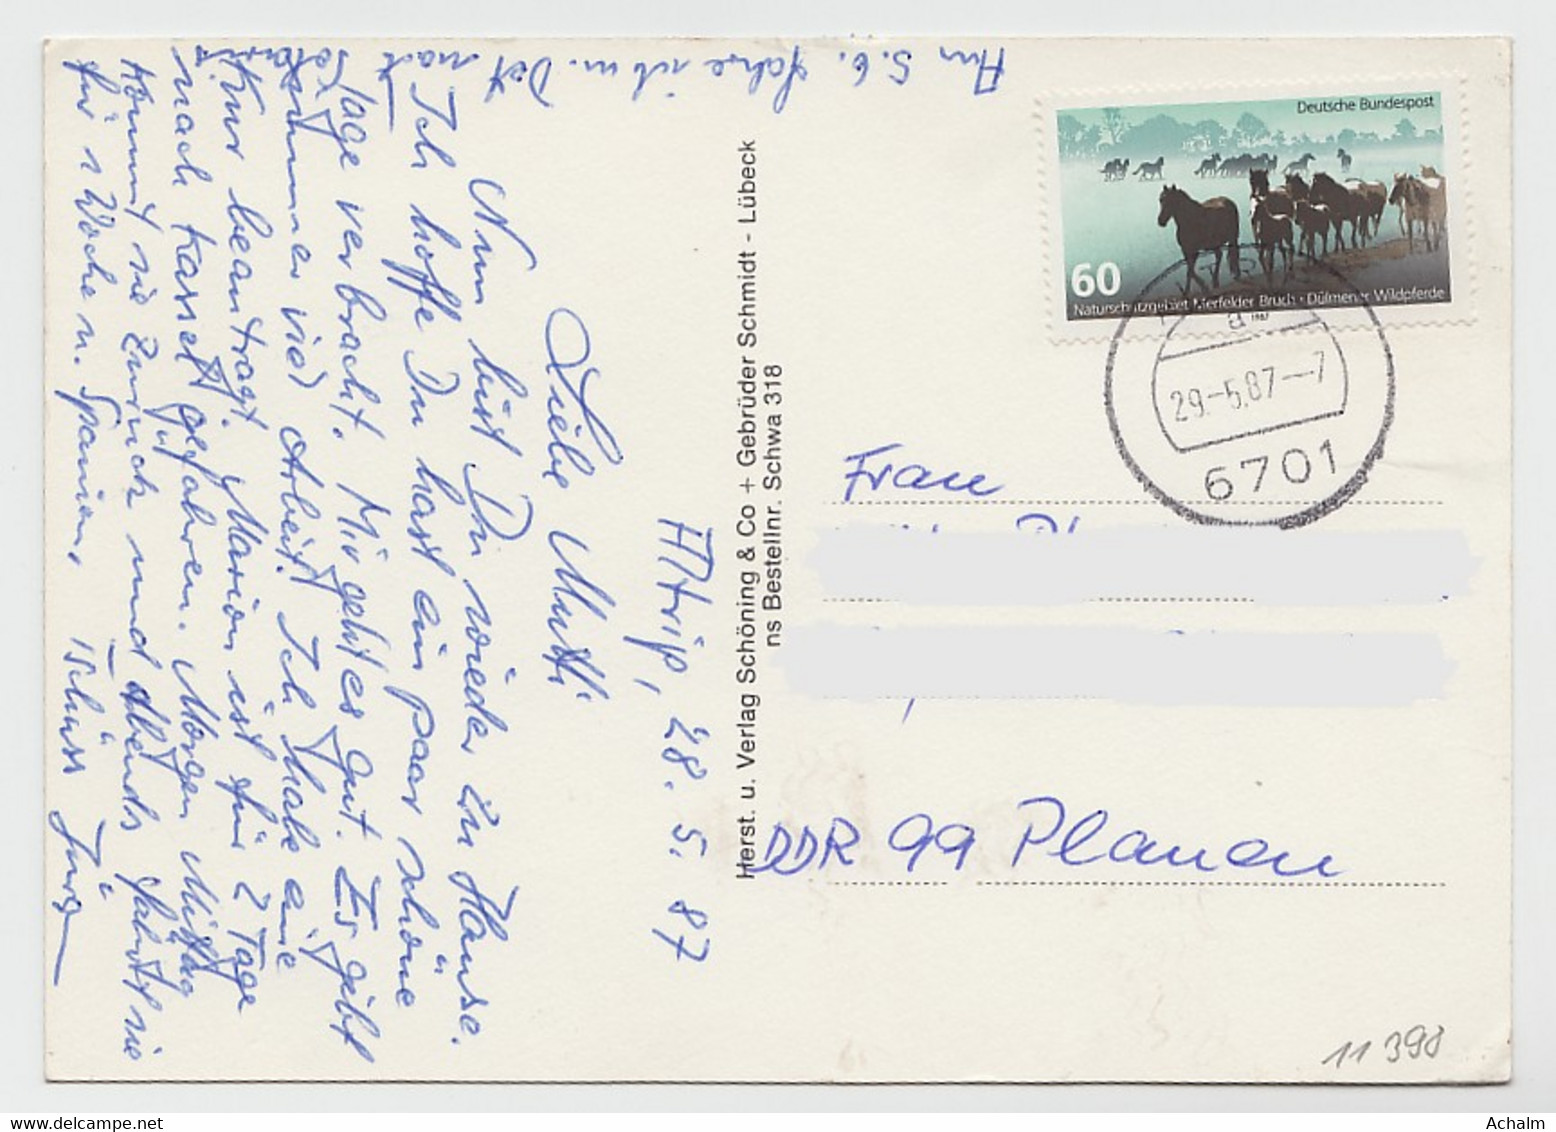 Am 5.6. fahre ich m. Det nach
Altrip, 28.5.87
Liebe Mutti
Nun bist Du wieder zu Hause.
Ich hoffe Du hast ein paar schöne
Tage verbracht. Mir geht es gut. Es gibt
immer viel Arbeit. Ich habe eine
Kur beantragt. Marion ist für 2 Tage
nach Kassel gefahren. Morgen Mittag
kommt sie zurück und Abends fährt sie
für 1 Woche n. Spanien.
Tschüss
Herst. u. Verlag Schöning & Co + Gebrüder Schmidt - Lübeck
ns Bestellnr. Schwa 318
Deutsche Bundespost
60
Naturschutzgebiet Merfelder Bruch · Dülmener Wildpferde
1987
a
29.-5.87--7
6701
Frau
DDR 99 Plauen
11 398
Achalm